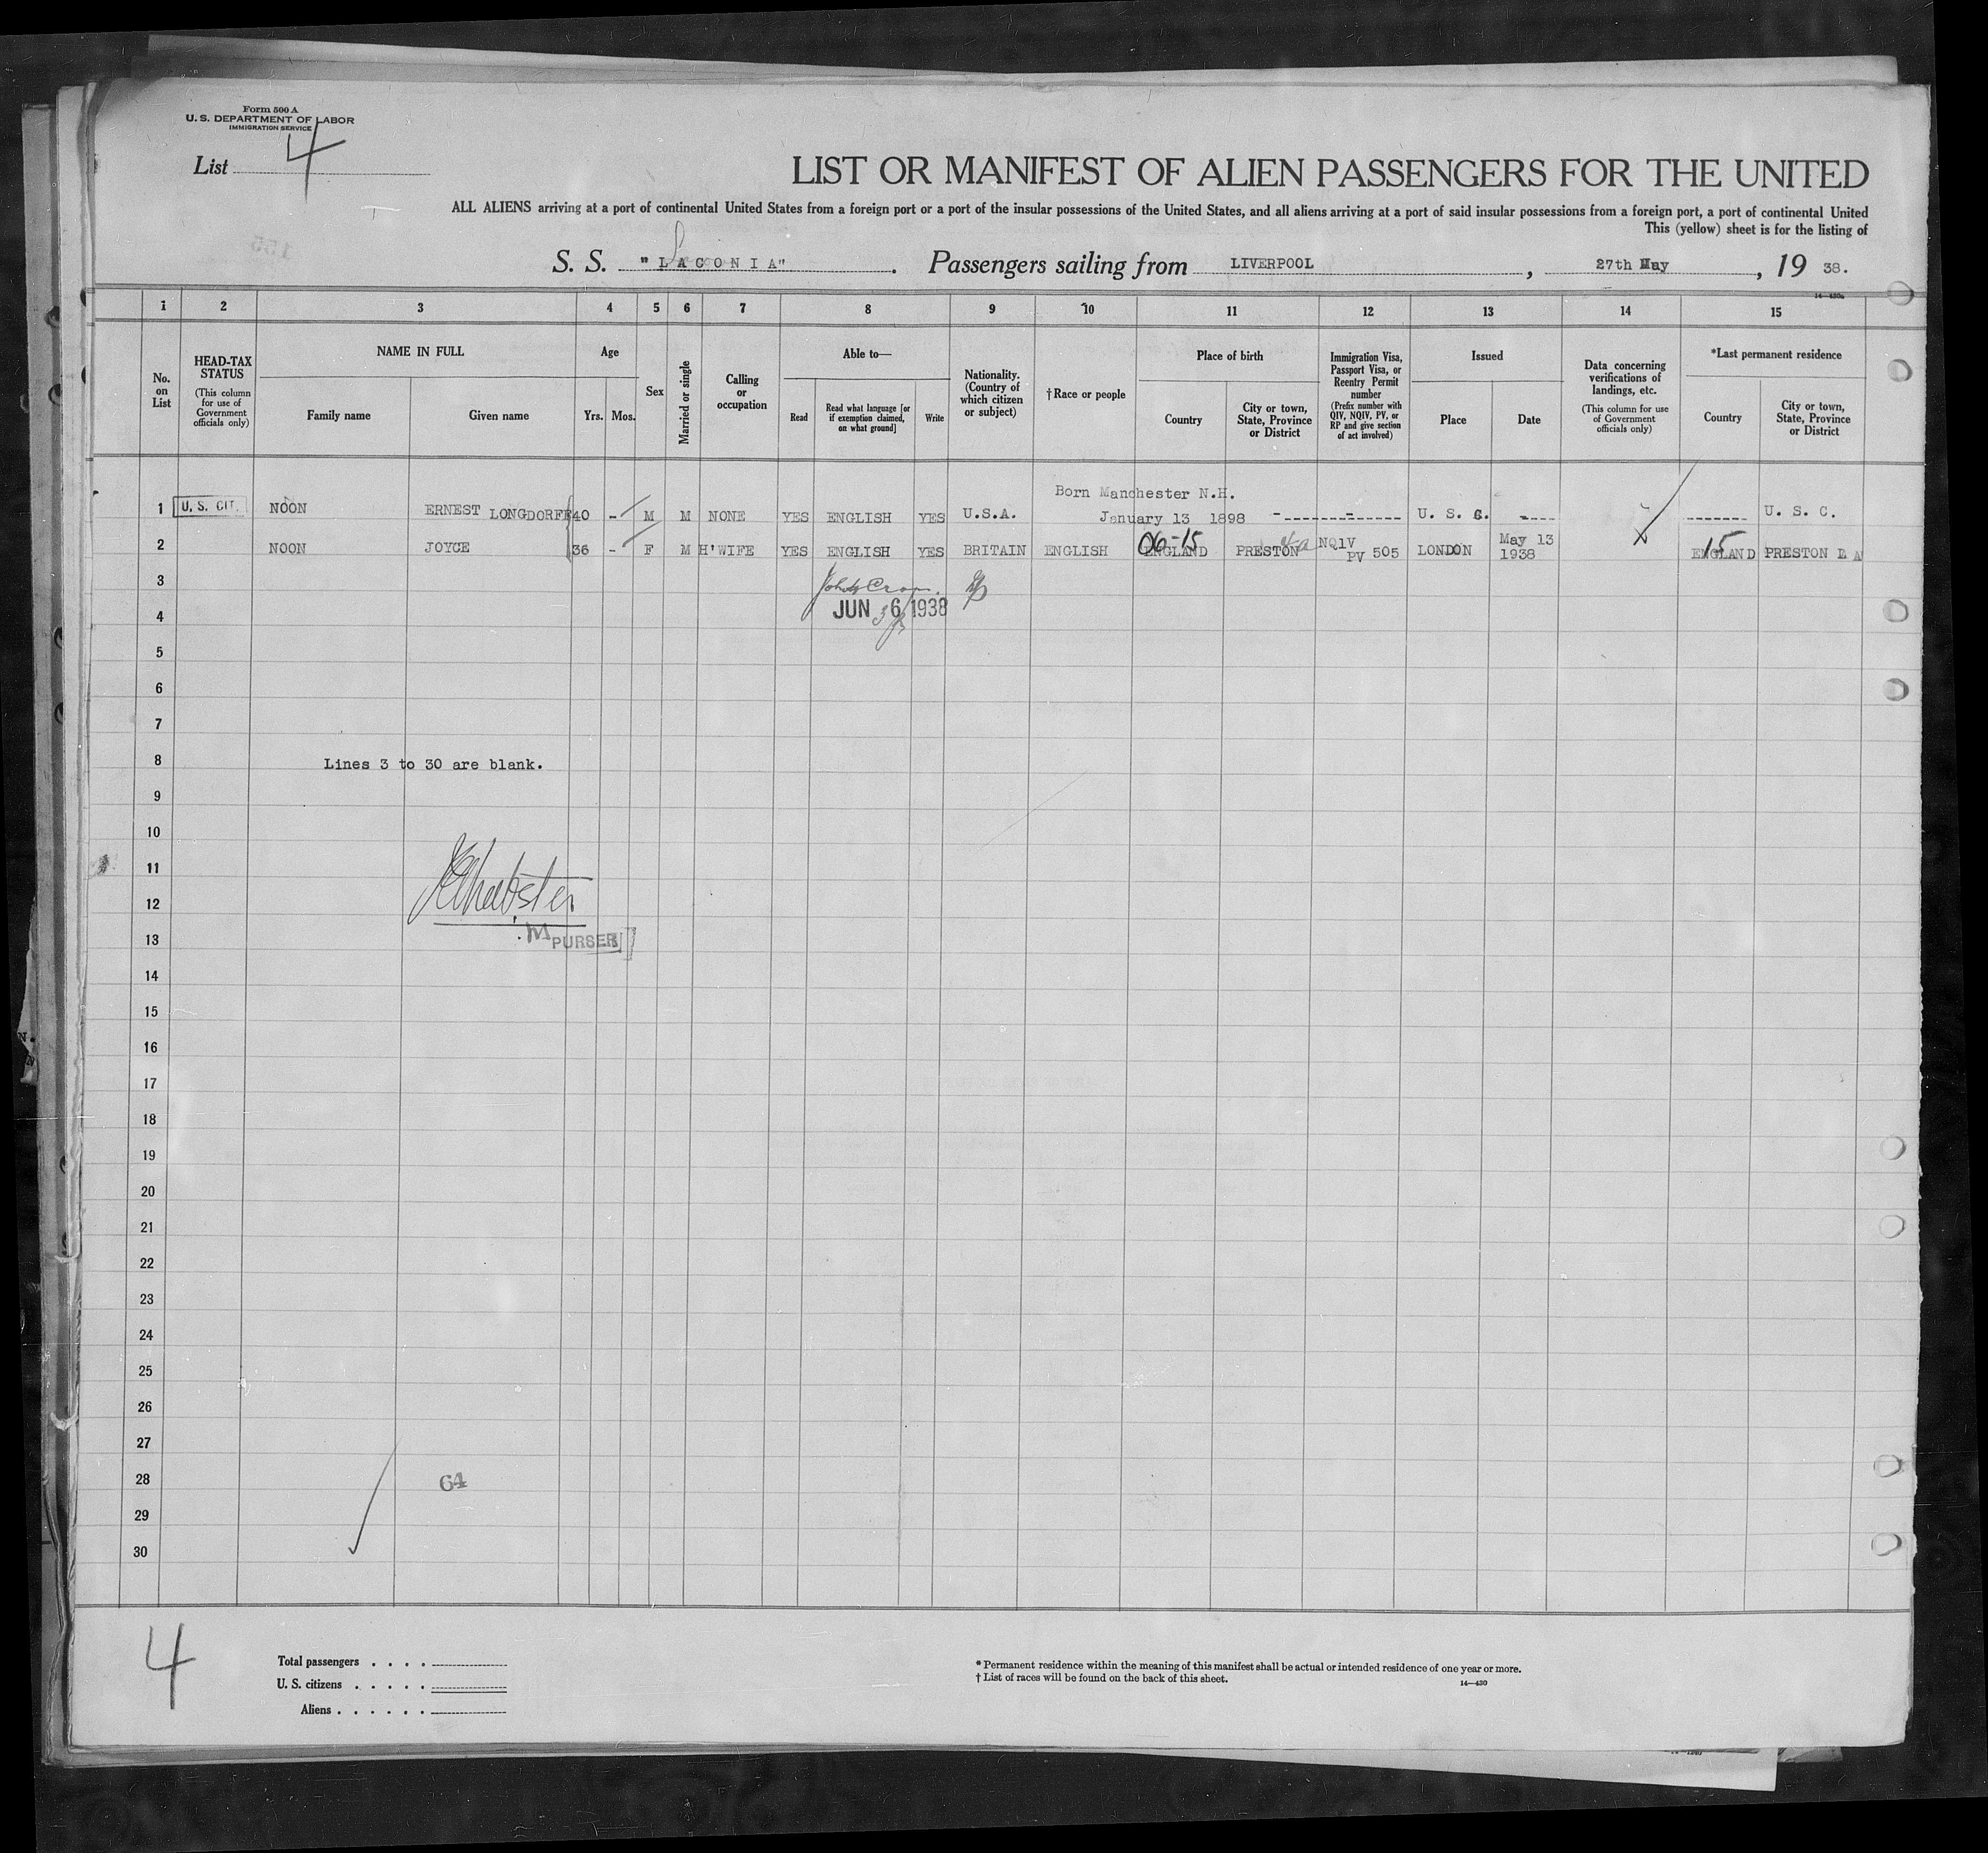 Form 500 A
U. S. DEPARTMENT OF LABOR
IMMIGRATION SERVICE
List 4
LIST OR MANIFEST OF ALIEN PASSENGERS FOR THE UNITED
ALL ALIENS arriving at a port of continental United States from a foreign port or a port of the insular possessions of the United States, and all aliens arriving at a port of said insular possessions from a foreign port, a port of continental United
This (yellow) sheet is for the listing of
155
S. S. "LACONIA" . Passengers sailing from LIVERPOOL , 27th May , 19 38.
1 2 3 4 5 6 7 8 9 10 11 12 13 14 15
No. on List
HEAD-TAX STATUS
(This column for use of Government officials only)
NAME IN FULL
Family name
Given name
Age
Yrs. Mos.
Sex
Married or single
Calling or occupation
Able to—
Read
Read what language [or if exemption claimed, on what ground]
Write
Nationality. (Country of which citizen or subject)
†Race or people
Place of birth
Country
City or town, State, Province or District
Immigration Visa, Passport Visa, or Reentry Permit number
(Prefix number with QIV, NQIV, PV, or RP and give section of act involved)
Issued
Place
Date
Data concerning verifications of landings, etc.
(This column for use of Government officials only)
*Last permanent residence
Country
City or town, State, Province or District
Born Manchester N.H.
1 U. S. CIT. NOON ERNEST LONGDORFF 40 - M M NONE YES ENGLISH YES U.S.A. January 13 1898 - ------------ U. S. C. ---- ------- U. S. C.
2 NOON JOYCE 36 - F M H'WIFE YES ENGLISH YES BRITAIN ENGLISH 06-15 ENGLAND PRESTON NQ1V PV 505 LONDON May 13 1938 15 ENGLAND PRESTON
3
4 JUN 6 1938
5
6
7
8 Lines 3 to 30 are blank.
9
10
11
12
13 PURSER
14
15
16
17
18
19
20
21
22
23
24
25
26
27
28 64
29
30
4
Total passengers . . . .
U. S. citizens . . . . .
Aliens . . . . . .
* Permanent residence within the meaning of this manifest shall be actual or intended residence of one year or more.
† List of races will be found on the back of this sheet.
14—430